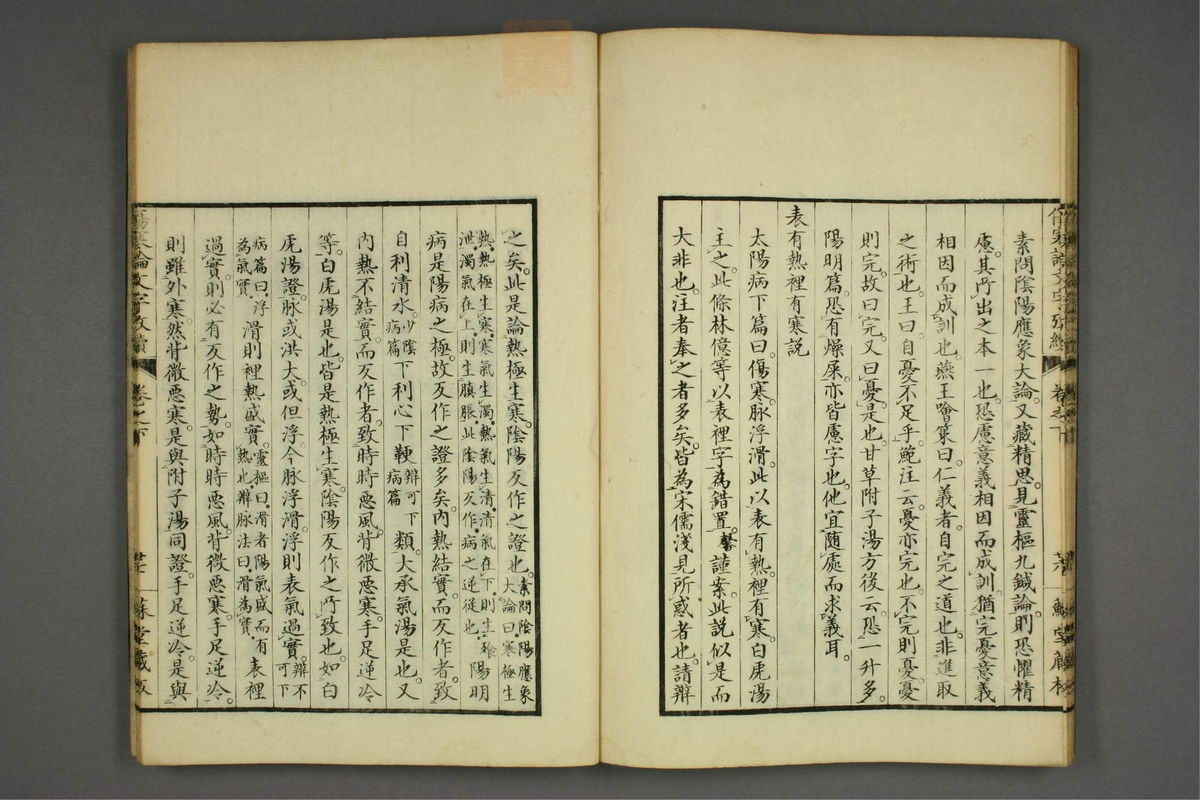 素問陰陽應象大論又藏精思見靈樞九鍼論則恐懼精
慮其所出之本一也恐慮意義相因而成訓猶完憂意義
相因而成訓也燕王噲策曰仁義者自完之道也非進取
之術也王曰自憂不足乎鮑注云憂亦完也不完則憂憂
則完故曰完又曰憂是也甘草附子湯方後云恐一升多
陽明篇恐有燥屎亦皆慮字也他宜随處而求義耳
表有熱裡有寒説
太陽病下篇曰傷寒脉浮滑此以表有熱裡有寒白虎湯
主之此條林億等以表裡字為錯置馨謹案此説似是而
大非也注者奉之者多矣皆為宋儒淺見所惑者也請辨
之矣此是論熱極生寒陰陽反作之證也素問陰陽應象大論曰寒極生
熱熱極生寒寒氣生濁熱氣生清清氣在下則生飱泄濁氣在上則生䐜脹此陰陽反作病之逆從也陽明
病是陽病之極故反作之證多矣内熱結實而反作者致
自利清水少陰病篇下利心下鞕辨可下病篇類大承氣湯是也又
内熱不結實而反作者致時時惡風背微惡寒手足逆冷
等白虎湯是也皆是熱極生寒陰陽反作之所致也如白
虎湯證脉或洪大或但浮今脉浮滑浮則表氣過實辨不可下
病篇曰浮為氣實滑則裡熱盛實靈樞曰滑者陽氣盛而有熱也辨脉法曰滑為實表裡
過實則必有反作之勢如時時惡風背微惡寒手足逆冷
則雖外寒然背微惡寒是與附子湯同證手足逆冷是與
傷寒論文字攷續
卷之下
蘇堂藏板